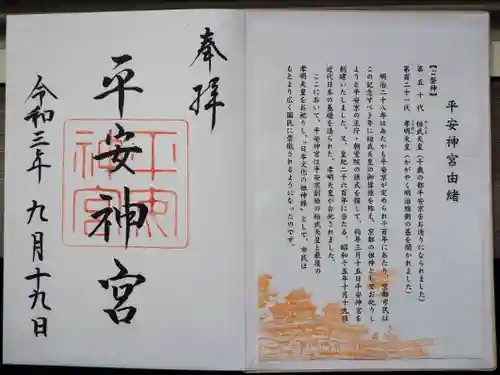 奉拝
平安神宮
令和三年 九月十九日
平安神宮
平安神宮由緒
【ご祭神】
第五十代 桓武天皇（千歳の都平安京をお造りになられました）
第百二十一代 孝明天皇（かがやく明治維新の基を開かれました）
明治二十八年はあたかも平安京が定められ千百年にあたり、京都市民は
この記念すべき年に桓武天皇の御偉徳を称え、京都の祖神としてお祀りし
ようと平安京の正庁・朝堂院の様式を模して、同年三月十五日平安神宮を
創建いたしました。又、皇紀二千六百年に当たる、昭和十五年十月十九日
近代日本の基礎を造られた、孝明天皇が合祀されました。
ここにおいて、平安神宮は平安京創始の桓武天皇と最後の
孝明天皇をお祀りし、"日本文化の祖神様"として、市民は
もとより広く国民に崇敬されるようになったのです。